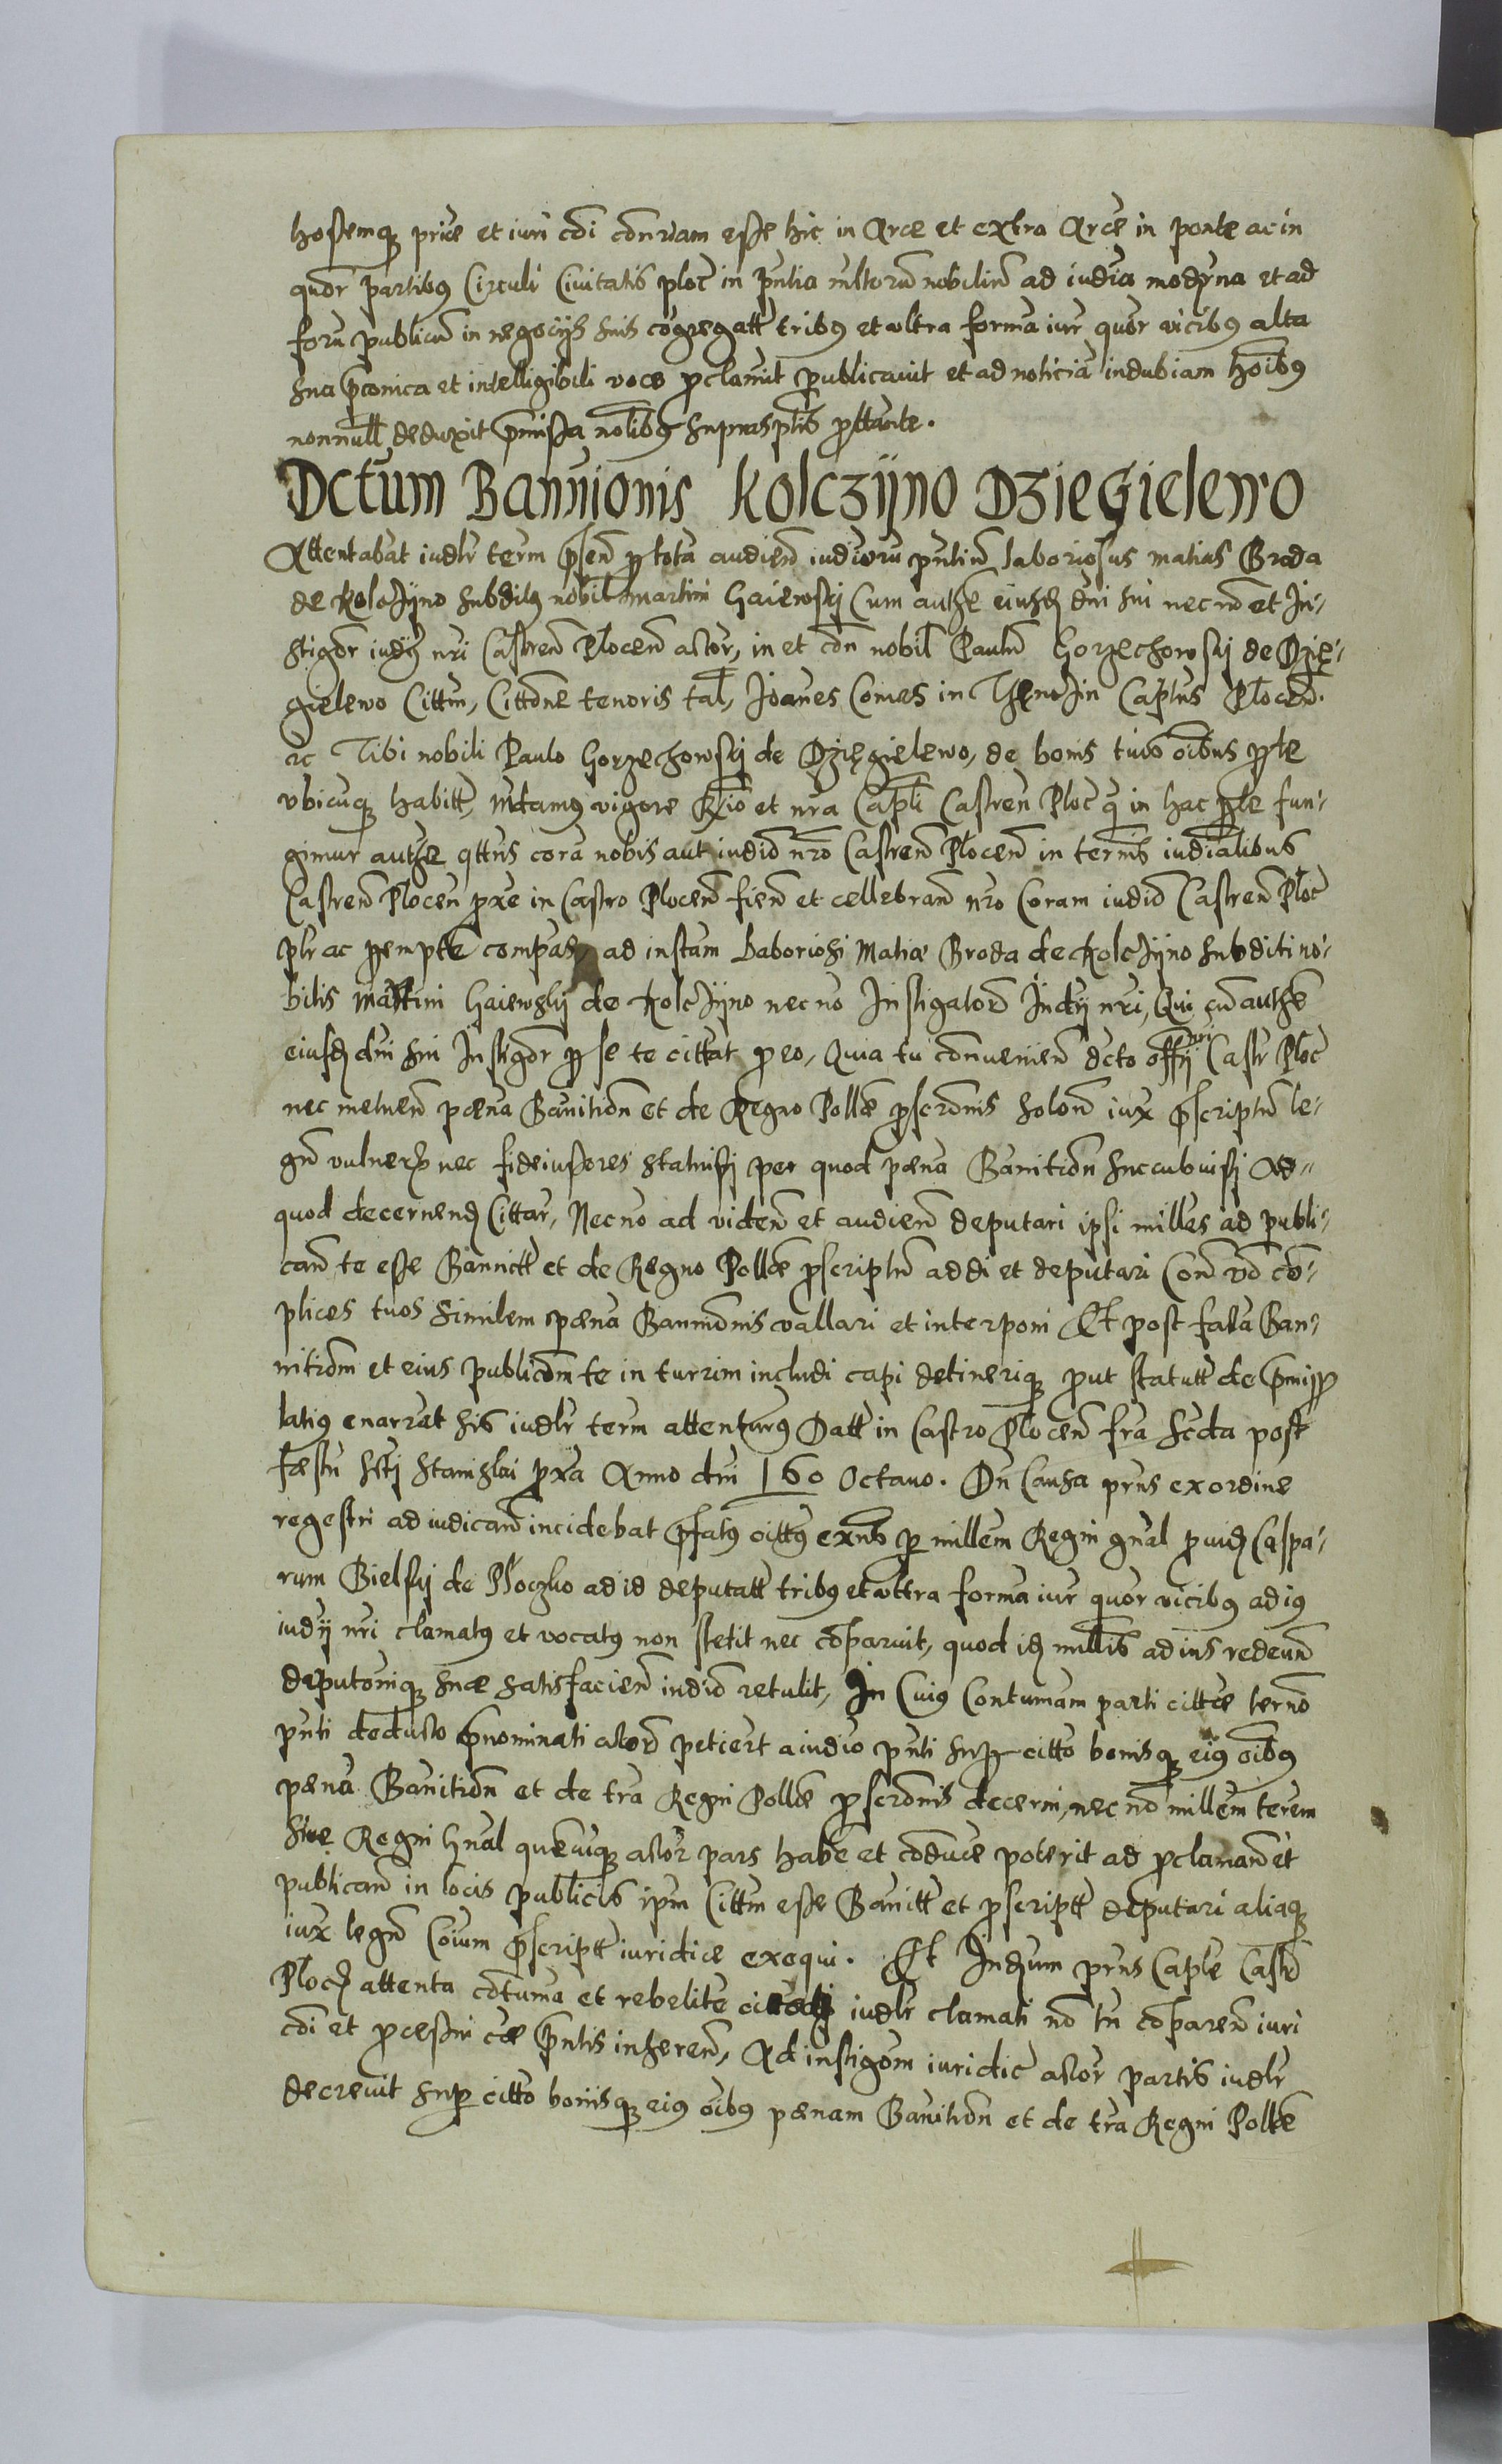 hostemq priæ et iuri coi conriam esse hic in Arce et extra Arce in ponte ac in
quor partibus Circuli Ciuitatis ploc in pntia multoru nobiliu ad iudia moderna et ad
foru publicu in negocijs suis cogregatt tribus et ultra forma iur quor vicibus alta
sua pconica et intelligibili voce proclamit publicauit et ad noticia indubiam hoibus
nonnull deduxit pmissa nolibus suprasptis prottante.
Dctum Bannionis Kolczijno Dziegielewo
Attentabat iudlr term psen p tota audien iudioru pntiu laboriosus matias Broda
de Kolczijno subditus nobil martini Gaiewskij Cum authe eiusd dni sui nec no et In-
stigor iudij nri Castren Plocen actor, in et con nobil Paulu Gorzechowskij de Dzię-
gielewo Cittm, Cittone tenoris tal, Joanes Comes in Thenczin Captus Plocen.
ac Tibi nobili Paulo Gorzechowskij de Dzięgielewo, de bonis tuis oibus prte
vbicuq habitt, mdamus vigore Rgio et nra Capli Castren Ploc q in hac prte fun-
gimur authe qttus cora nobis aut iudio nro Castren Plocen in termis iudialibus
Castren Plocen pxe in Castro Plocen fien et cellebran nro Coram iudio Castren Ploc
plr ac pempte compas ad instam Laboriosi Matiæ Broda de Kolczijno subditi no-
bilis Martini Gaiewskij de Kolczijno nec no Instigator Judij nri, Qui cu authe
eiusd dni sui Instigor p se te cittat pro eo, Quia tu convenien dcto offij nri Castr Ploc
nec metuen pæna Banition et de Regno Pollæ proscronis solon iux pscriptu le-
gu vulner nec fideiussores statuisti per quod pæna Banition succubuisti Ad-
quod decernend Cittar, Nec no ad viden et audien deputari ipsi milles ad publi-
can te esse Bannitt et de Regno Pollæ proscriptu addi et deputari Con vd co-
plices tuos similem pæna Bannionis vallari et interponi Et post fata Ban-
nitiom et eius publicom te in turrim includi capi detineriq prout statutt de pmiss
latius enarrat his iudlr term attenturus Datt in Castro Plocen fra Scda post
fæstu Scti Stanislai pxa Anno dni 160 Octauo. Du Causa prns ex ordine
regestri ad iudican incidebat pfatus cittus exns p millem Regni gnal prouid Caspa-
rum Bielskij de Płoczko ad id deputatt tribus et vltra forma iur quor vicibus ad ius
iudij nri clamatus et vocatus non stetit nec coparuit, quod id millis ad ius redeun
deputoniq suæ satisfacien iudio retulit, In Cuius Contumam parti cittæ terno
pnti deducto pnominati actor petiert a iudio pnti sup citto bonisq eius oibus
pæna Banition et de tra Regni Pollæ proscronis decerni, nec no millem terem
siue Regni Gnal quemuq actor pars habe et conduce poterit ad proclaman et
publican in locis publicis ipm Cittm esse Banitt et proscriptt deputari aliaq
iux legu Coium pscriptt iuridice exequi. Et Judium prns Caple Castr
Plocen attenta cotuma et rebelite iudlr clamati no tn coparen iuri
coi et processui cæ pntis inheren, Ad instigom iuridic actor partis iudlr
decreuit sup citto bonisq eius oibus pænam Banition et de tra Regni Pollæ